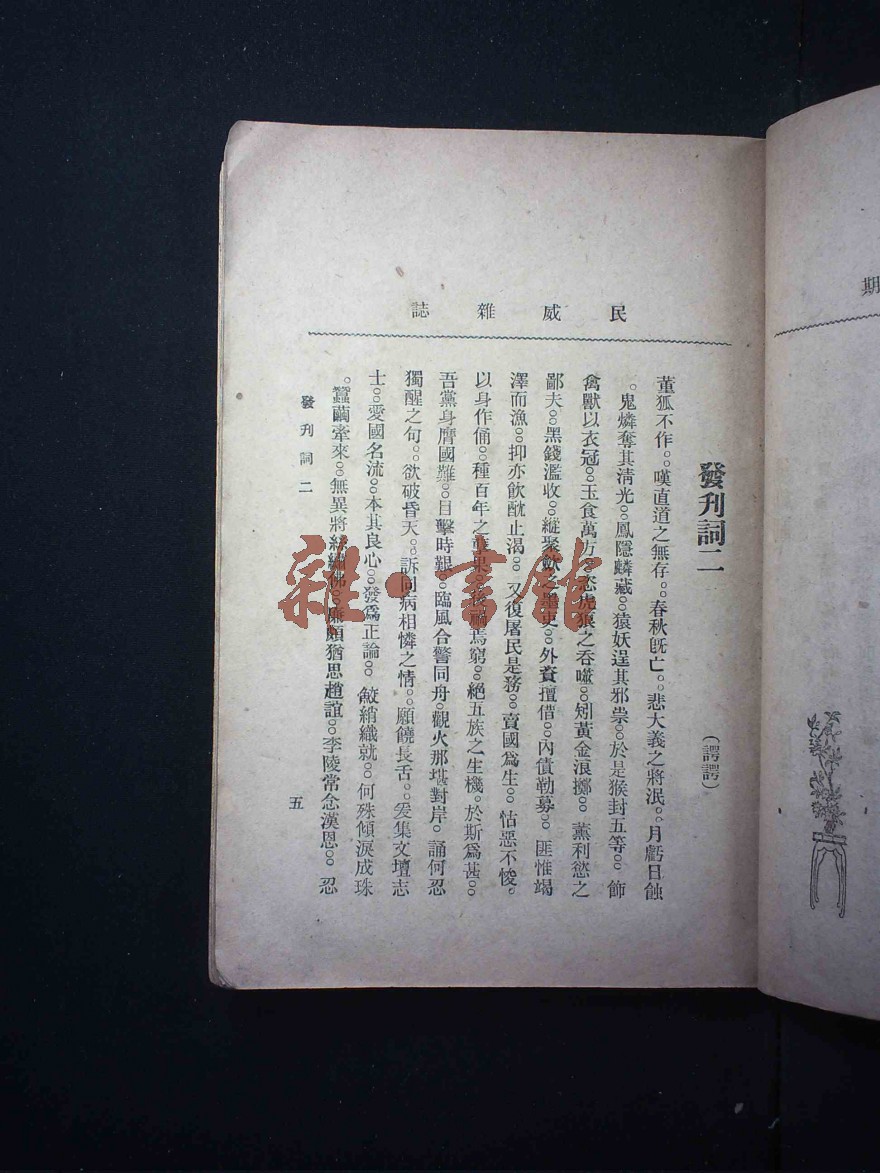 民威雜誌
發刊詞二
（諤諤）
董狐不作。。嘆直道之無存。。春秋旣亡。。悲大義之將泯。。月虧日蝕
。鬼燐奪其淸光。。鳳隱麟藏。。猿妖逞其邪祟。。於是猴封五等。。飾
禽獸以衣冠。。玉食萬方。。恣虎狼之吞噬。。矧黃金浪擲。。薰利慾之
鄙夫。。黑錢濫收。。縱聚歛之墨吏。。外賚擅借。。內債勒募。。匪惟竭
澤而漁。。抑亦飲酖止渴。。又復屠民是務。。賣國爲生。。怙惡不悛。
以身作俑。。種百年之果。。後禍焉窮。。絕五族之生機。。於斯爲甚。。
吾黨身膺國難。。目擊時艱。。臨風合警同舟。觀火那堪對岸。。誦何忍
獨醒之句。。欲破昏天。。訴同病相憐之情。。願饒長舌。。爰集文壇志
士。。愛國名流。。本其良心。。發爲正論。。鮫綃織就。。何殊傾淚成珠
。蠶繭牽來。。無異將絲繡佛。。廉頗猶思趙誼。。李陵常念漢恩。。忍
發刊詞二
五
期
雜·書館